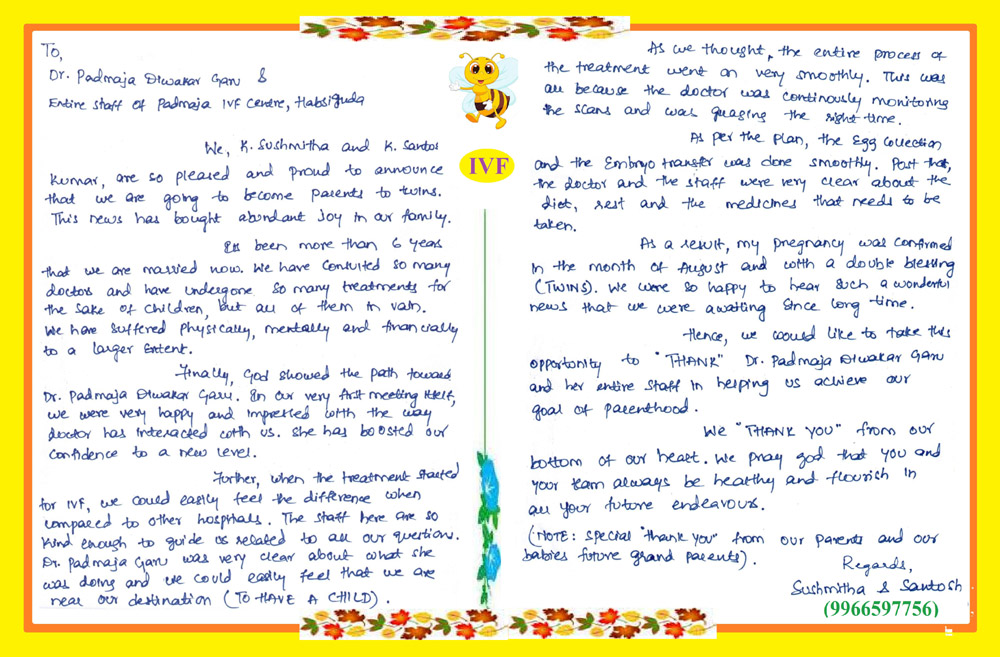 To,
Dr. Padmaja Diwakar Garu &
Entire staff of Padmaja IVF Centre, Habsiguda
We, K. Sushmitha and K. Santos
Kumar, are so pleased and proud to announce
that we are going to become parents to twins.
This news has bought abundant joy in our family.
It's been more than 6 years
that we are married now. We have consulted so many
doctors and have undergone so many treatments for
the sake of children, but all of them in vain.
We have suffered physically, mentally and financially
to a larger extent.
Finally, God showed the path towards
Dr. Padmaja Diwakar Garu. In our very first meeting itself,
we were very happy and impressed with the way
doctor has interacted with us. She has boosted our
confidence to a new level.
Further, when the treatment started
for IVF, we could easily feel the difference when
compared to other hospitals. The staff here are so
kind enough to guide us related to all our questions.
Dr. Padmaja Garu was very clear about what she
was doing and we could easily feel that we are
near our destination (TO HAVE A CHILD).
IVF
As we thought, the entire process of
the treatment went on very smoothly. This was
all because the doctor was continously monitoring
the scans and was guaging the right time.
As per the plan, the Egg collection
and the Embryo transfer was done smoothly. Post that,
the doctor and the staff were very clear about the
diet, rest and the medicines that needs to be
taken.
As a result, my pregnancy was confirmed
in the month of August and with a double blessing
(TWINS). We were so happy to hear such a wonderful
news that we were awaiting since long time.
Hence, we would like to take this
opportunity to "THANK" Dr. Padmaja Diwakar Garu
and her entire staff in helping us achieve our
goal of parenthood.
We "THANK YOU" from our
bottom of our heart. We pray god that you and
your team always be healthy and flourish in
all your future endeavours.
(NOTE: Special "thank you" from our parents and our
babies future grand parents).
Regards,
Sushmitha & Santosh
(9966597756)